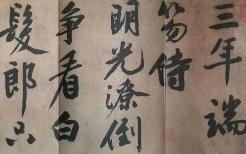 三年端
笏侍
明光潦倒
争看白
髮郎只